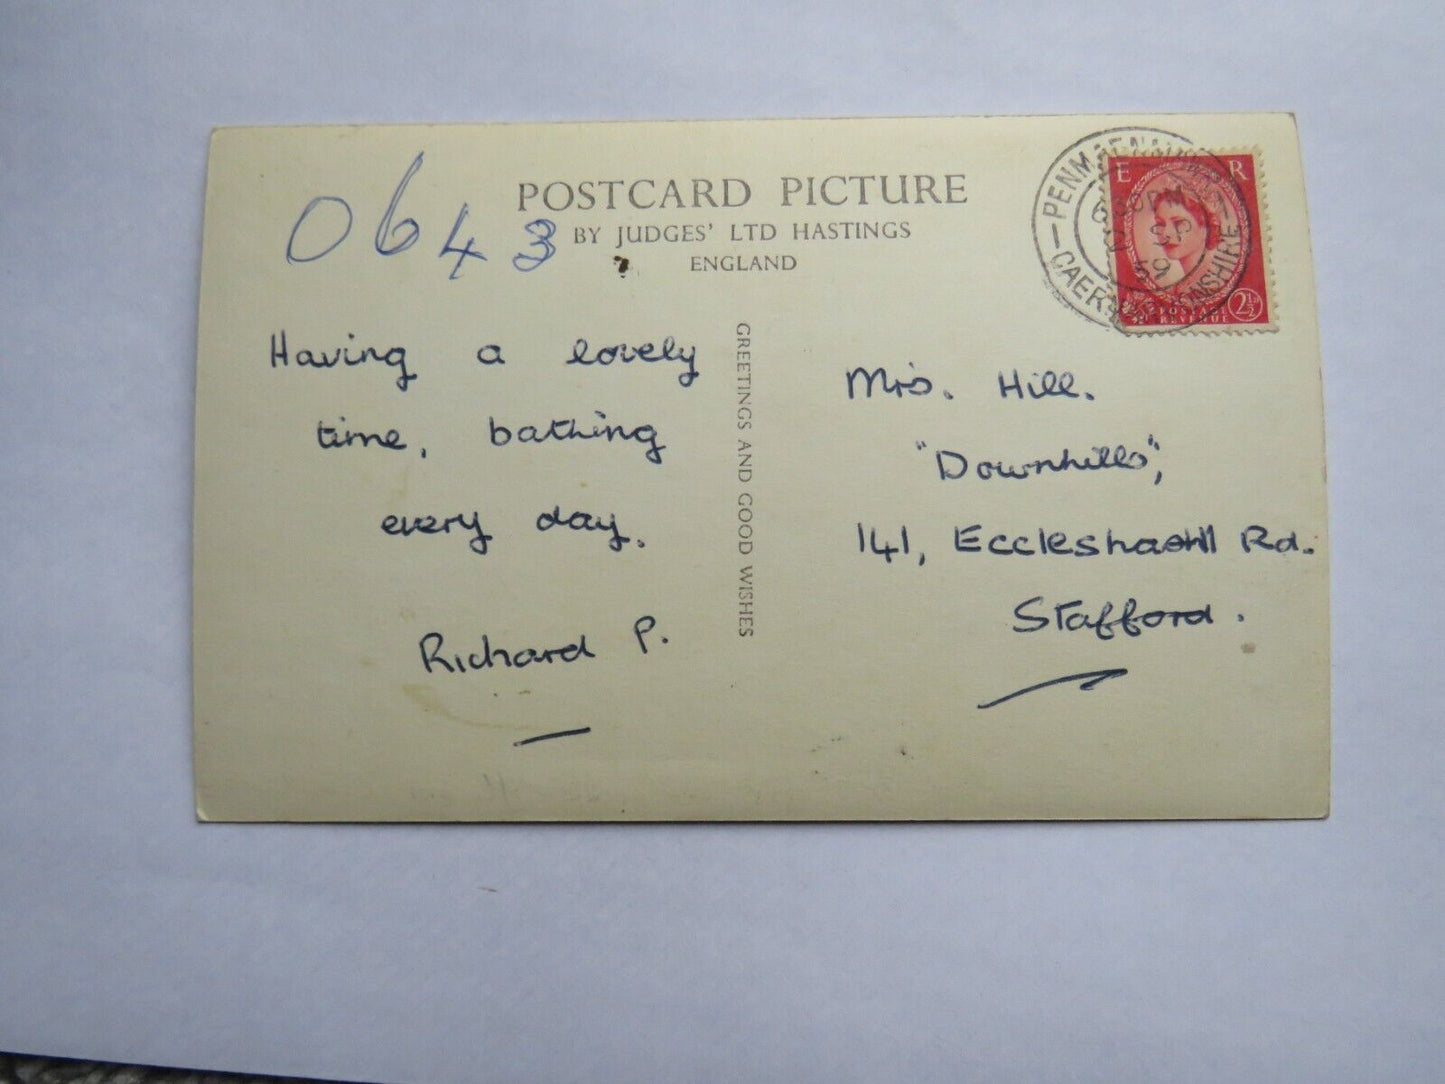 0643
POSTCARD PICTURE
BY JUDGES' LTD HASTINGS
ENGLAND
Having a lovely
time, bathing
every day.
Richard P.
GREETINGS AND GOOD WISHES
E R
POSTAGE
REVENUE
2½
PENMAENMAWR
CAERNARVONSHIRE
SP
59
Mrs. Hill.
"Downhills",
141, Eccleshall Rd.
Stafford.